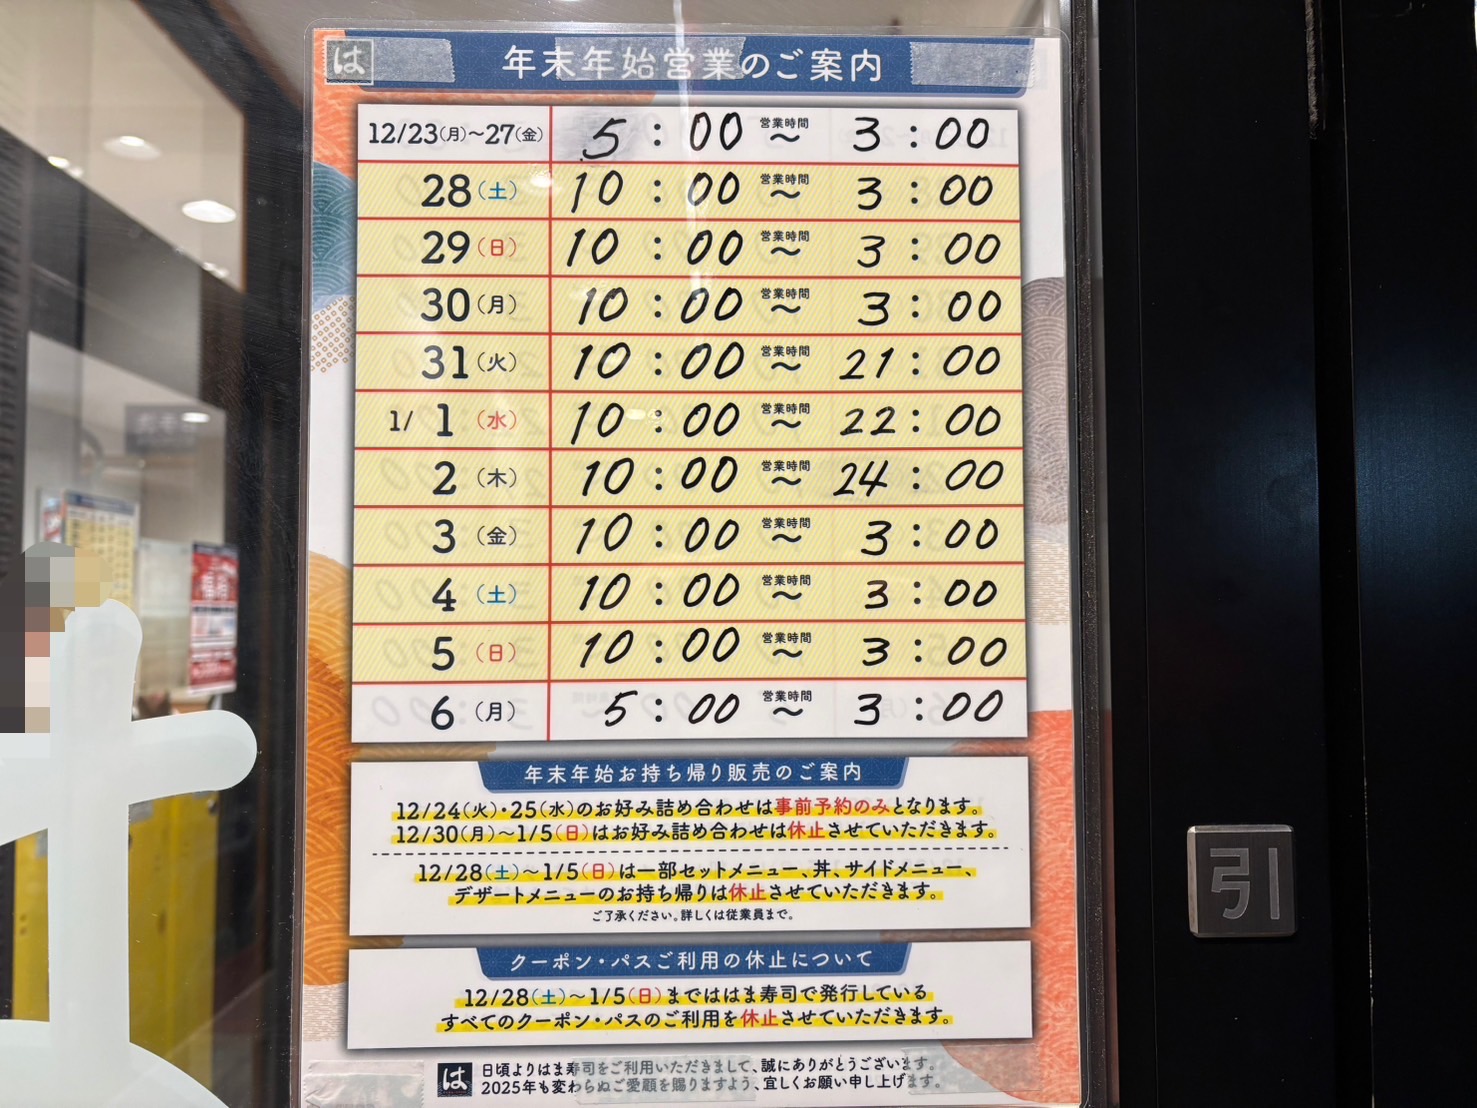 は 年末年始営業のご案内
12/23(月)〜27(金) 5:00 営業時間 〜 3:00
28(土) 10:00 営業時間 〜 3:00
29(日) 10:00 営業時間 〜 3:00
30(月) 10:00 営業時間 〜 3:00
31(火) 10:00 営業時間 〜 21:00
1/1(水) 10:00 営業時間 〜 22:00
2(木) 10:00 営業時間 〜 24:00
3(金) 10:00 営業時間 〜 3:00
4(土) 10:00 営業時間 〜 3:00
5(日) 10:00 営業時間 〜 3:00
6(月) 5:00 営業時間 〜 3:00
年末年始お持ち帰り販売のご案内
12/24(火)・25(水)のお好み詰め合わせは事前予約のみとなります。
12/30(月)〜1/5(日)はお好み詰め合わせは休止させていただきます。
12/28(土)〜1/5(日)は一部セットメニュー、丼、サイドメニュー、
デザートメニューのお持ち帰りは休止させていただきます。
ご了承ください。詳しくは従業員まで。
クーポン・パスご利用の休止について
12/28(土)〜1/5(日)まではは​ま寿司で発行している
すべてのクーポン・パスのご利用を休止させていただきます。
は 日頃よりはま寿司をご利用いただきまして、誠にありがとうございます。
2025年も変わらぬご愛顧を賜りますよう、宜しくお願い申し上げます。
引